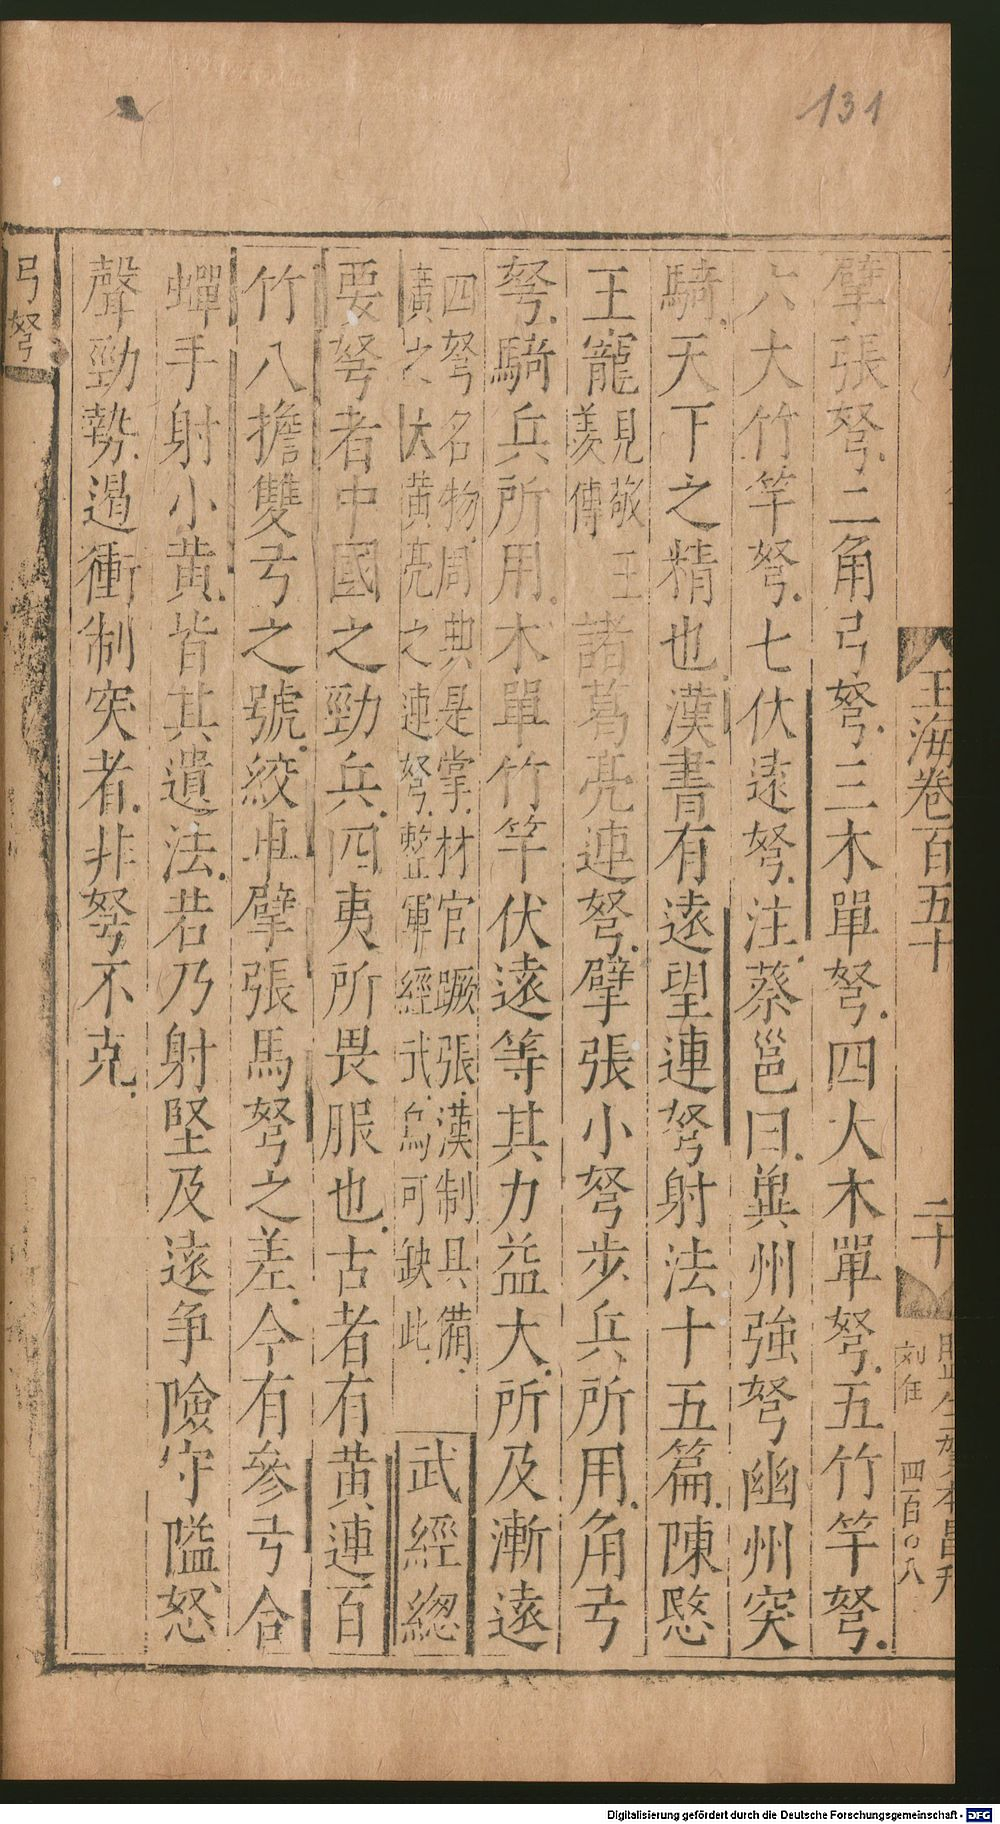 131
玉海卷百五十
二十
刘
四百〇八
擘張弩二角弓弩三木單弩四大木單弩五竹竿弩
六大竹竿弩七伏遠弩注蔡邕曰冀州強弩幽州突
騎天下之精也漢書有遠望連弩射法十五篇陳愍
王寵見敬王羨傳諸葛亮連弩擘張小弩步兵所用角弓
弩騎兵所用木單竹竿伏遠等其力益大所及漸遠
四弩名物周典是掌材官蹶張漢制具備
廣之大黄亮之連弩整軍經武烏可缺此
武經緫
要弩者中國之勁兵四夷所畏服也古者有黄連百
竹八擔雙弓之號絞車擘張馬弩之差今有參弓合
蟬手射小黄皆其遺法若乃射堅及遠争險守隘怒
聲勁勢遏衝制突者非弩不克
弓弩
Digitalisierung gefördert durch die Deutsche Forschungsgemeinschaft - DFG